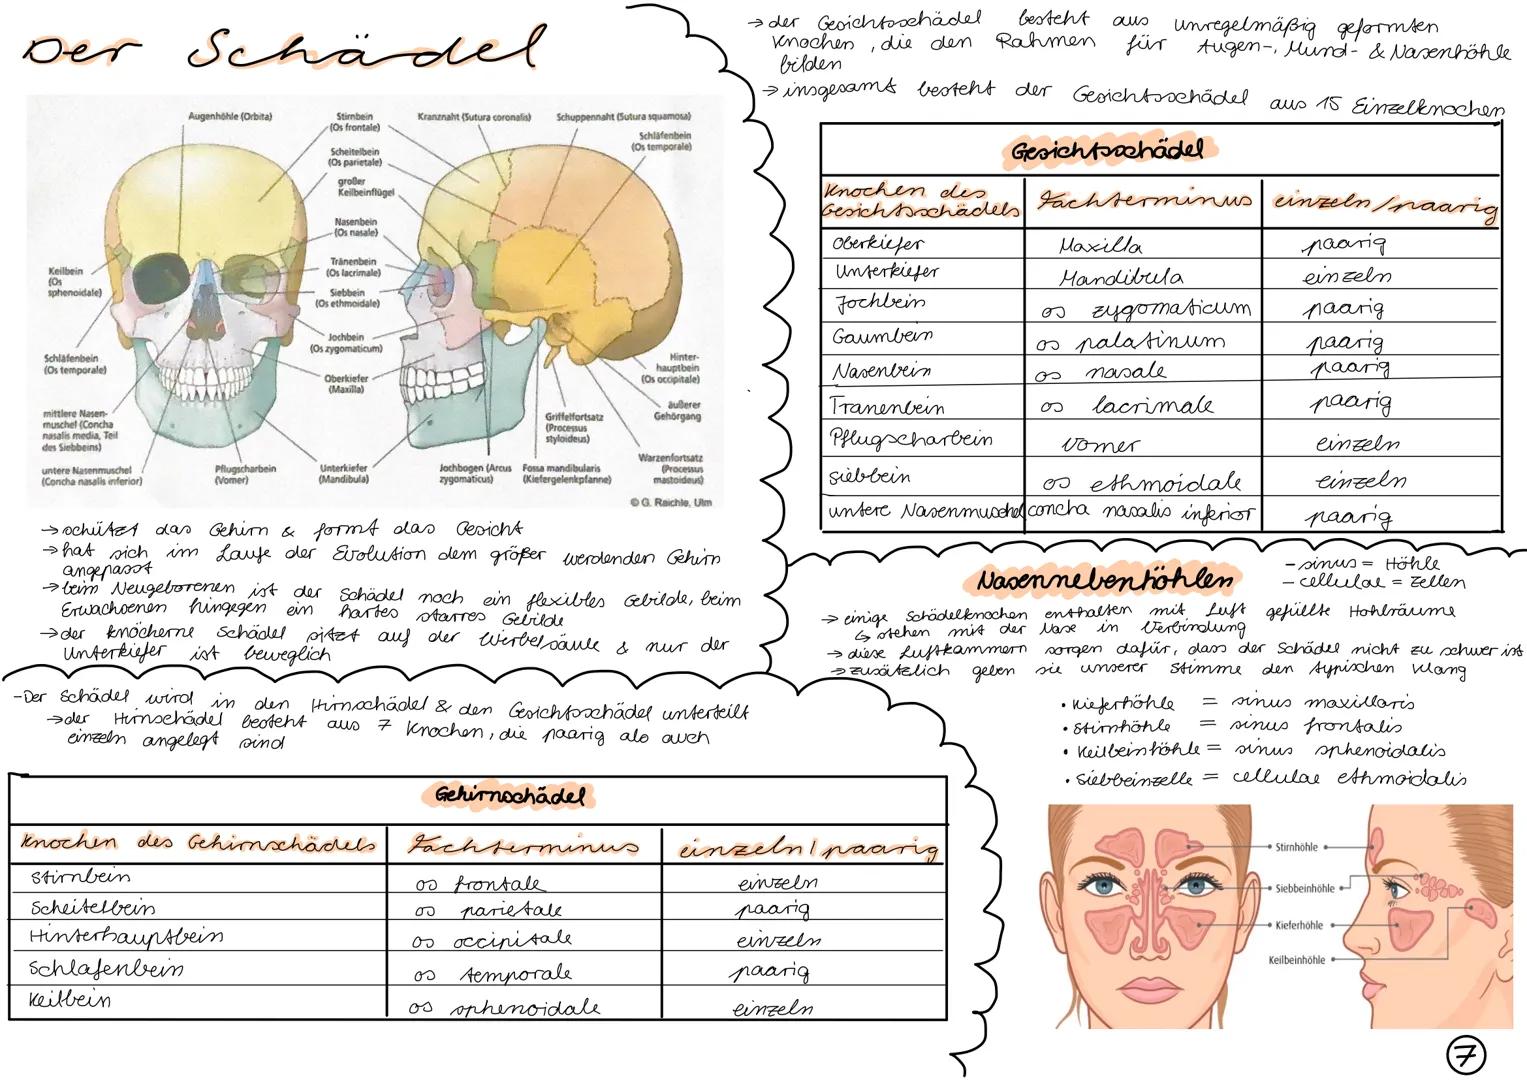 Der Schädel
Augenhöhle (Orbita)
Stirnbein
(Os frontale)
Kranznaht (Sutura coronalis)
Schuppennaht (Sutura squamosa)
Scheitelbein
(Os parietale)
Schläfenbein
(Os temporale)
großer
Keilbeinflügel
Nasenbein
(Os nasale)
Tränenbein
(Os lacrimale)
Siebbein
(Os ethmoidale)
Jochbein
(Os zygomaticum)
Oberkiefer
(Maxilla)
Keilbein
(Os
sphenoidale)
Schläfenbein
(Os temporale)
mittlere Nasen-
muschel (Concha
nasalis media, Teil
des Siebbeins)
untere Nasenmuschel
(Concha nasalis inferior)
Pflugscharbein
(Vomer)
Unterkiefer
(Mandibula)
Jochbogen (Arcus
zygomaticus)
Fossa mandibularis
(Kiefergelenkpfanne)
Griffelfortsatz
(Processus
styloideus)
Hinter-
hauptbein
(Os occipitale)
äußerer
Gehörgang
Warzenfortsatz
(Processus
mastoideus)
© G. Raichle, Ulm
→ schützt das Gehirn & formt das Gesicht
→ hat sich im Laufe der Evolution dem größer werdenden Gehirn
angepasst
→ beim Neugeborenen ist der Schädel noch ein flexibles Gebilde, beim
Erwachsenen hingegen ein hartes starres Gebilde
→ der knöcherne Schädel sitzt auf der Wirbelsäule & nur der
Unterkiefer ist beweglich
- Der Schädel wird in den Hirnschädel & den Gesichtsschädel unterteilt
→ der Hirnschädel besteht aus 7 Knochen, die paarig als auch
einzeln angelegt sind
Gehirnschädel
Knochen des Gehirnschädels Fachterminus einzeln / paarig
Stirnbein os frontale einzeln
Scheitelbein os parietale paarig
Hinterhauptbein os occipitale einzeln
Schläfenbein os temporale paarig
Keilbein os sphenoidale einzeln
→ der Gesichtsschädel besteht aus unregelmäßig geformten
Knochen, die den Rahmen für Augen-, Mund- & Nasenhöhle
bilden
→ insgesamt besteht der Gesichtsschädel aus 15 Einzelknochen
Gesichtsschädel
Knochen des
Gesichtsschädels Fachterminus einzeln / paarig
Oberkiefer Maxilla paarig
Unterkiefer Mandibula einzeln
Jochbein os zygomaticum paarig
Gaumbein os palatinum paarig
Nasenbein os nasale paarig
Tränenbein os lacrimale paarig
Pflugscharbein vomer einzeln
Siebbein os ethmoidale einzeln
untere Nasenmuschel concha nasalis inferior paarig
Nasennebenhöhlen
- sinus = Höhle
- cellulae = Zellen
→ einige Schädelknochen enthalten mit Luft gefüllte Hohlräume
↳ stehen mit der Nase in Verbindung
→ diese Luftkammern sorgen dafür, dass der Schädel nicht zu schwer ist
→ zusätzlich geben sie unserer Stimme den typischen Klang
• Kieferhöhle = sinus maxillaris
• Stirnhöhle = sinus frontalis
• Keilbeinhöhle = sinus sphenoidalis
• Siebbeinzelle = cellulae ethmoidalis
Stirnhöhle
Siebbeinhöhle
Kieferhöhle
Keilbeinhöhle
7